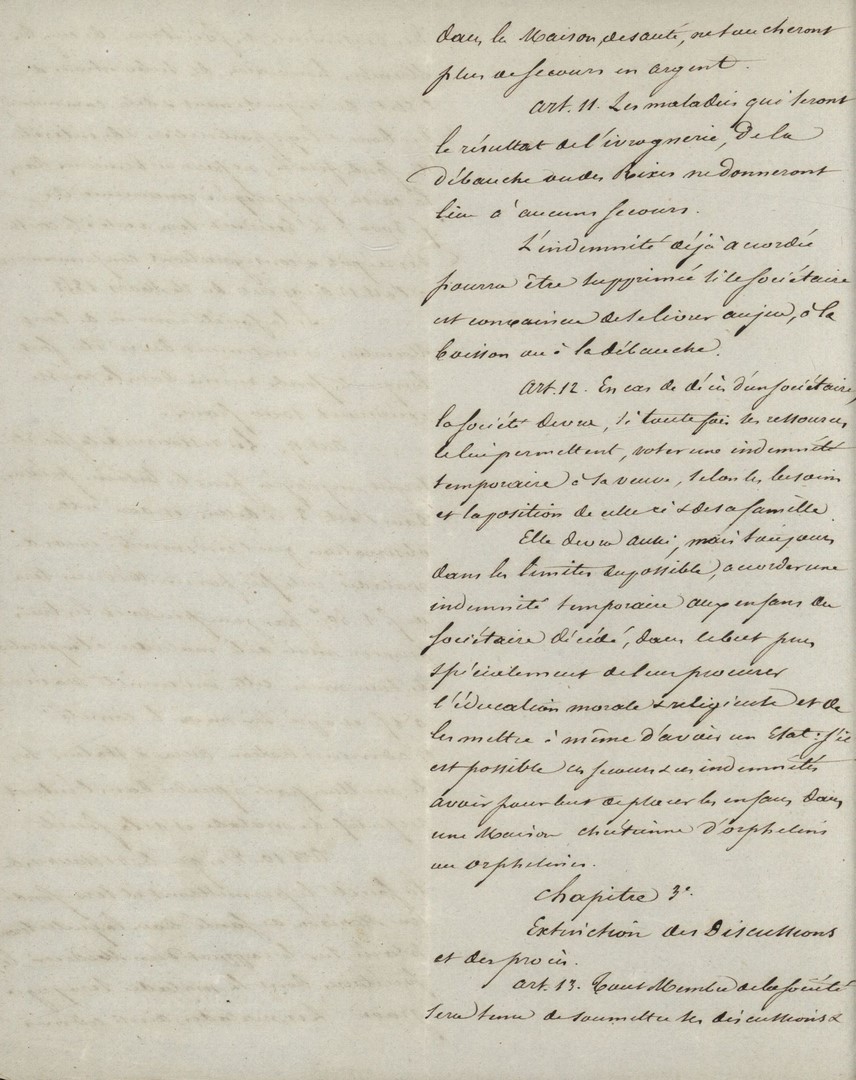 dans la Maison de santé, ne toucheront
plus de secours en argent.
Art. 11. Les maladies qui seront
le résultat de l'ivrognerie, de la
débauche ou des Rixes ne donneront
lieu à aucuns secours.
L'indemnité déjà accordée
pourra être supprimée si le sociétaire
est convaincu de se livrer au jeu, à la
boisson ou à la débauche.
Art. 12. En cas de décès d'un sociétaire,
la société devra, si toutefois ses ressources
le lui permettent, voter une indemnité
temporaire à sa veuve, selon les besoins
et la position de celle ci & de sa famille
Elle devra aussi, mais toujours
dans les limites du possible, accorder une
indemnité temporaire aux enfans du
sociétaire décédé, dans le but plus
spécialement de leur procurer
l'éducation morale & religieuse et de
les mettre à même d'avoir un Etat. S'il
est possible ces secours & ces indemnités
avoir pour but de placer les enfans dans
une Maison chrétienne d'orphelins
ou orphelines.
Chapitre 3e.
Extinction des Discussions
et des procès.
Art. 13. Tout Membre de la société
sera tenu de soumettre ses discussions &